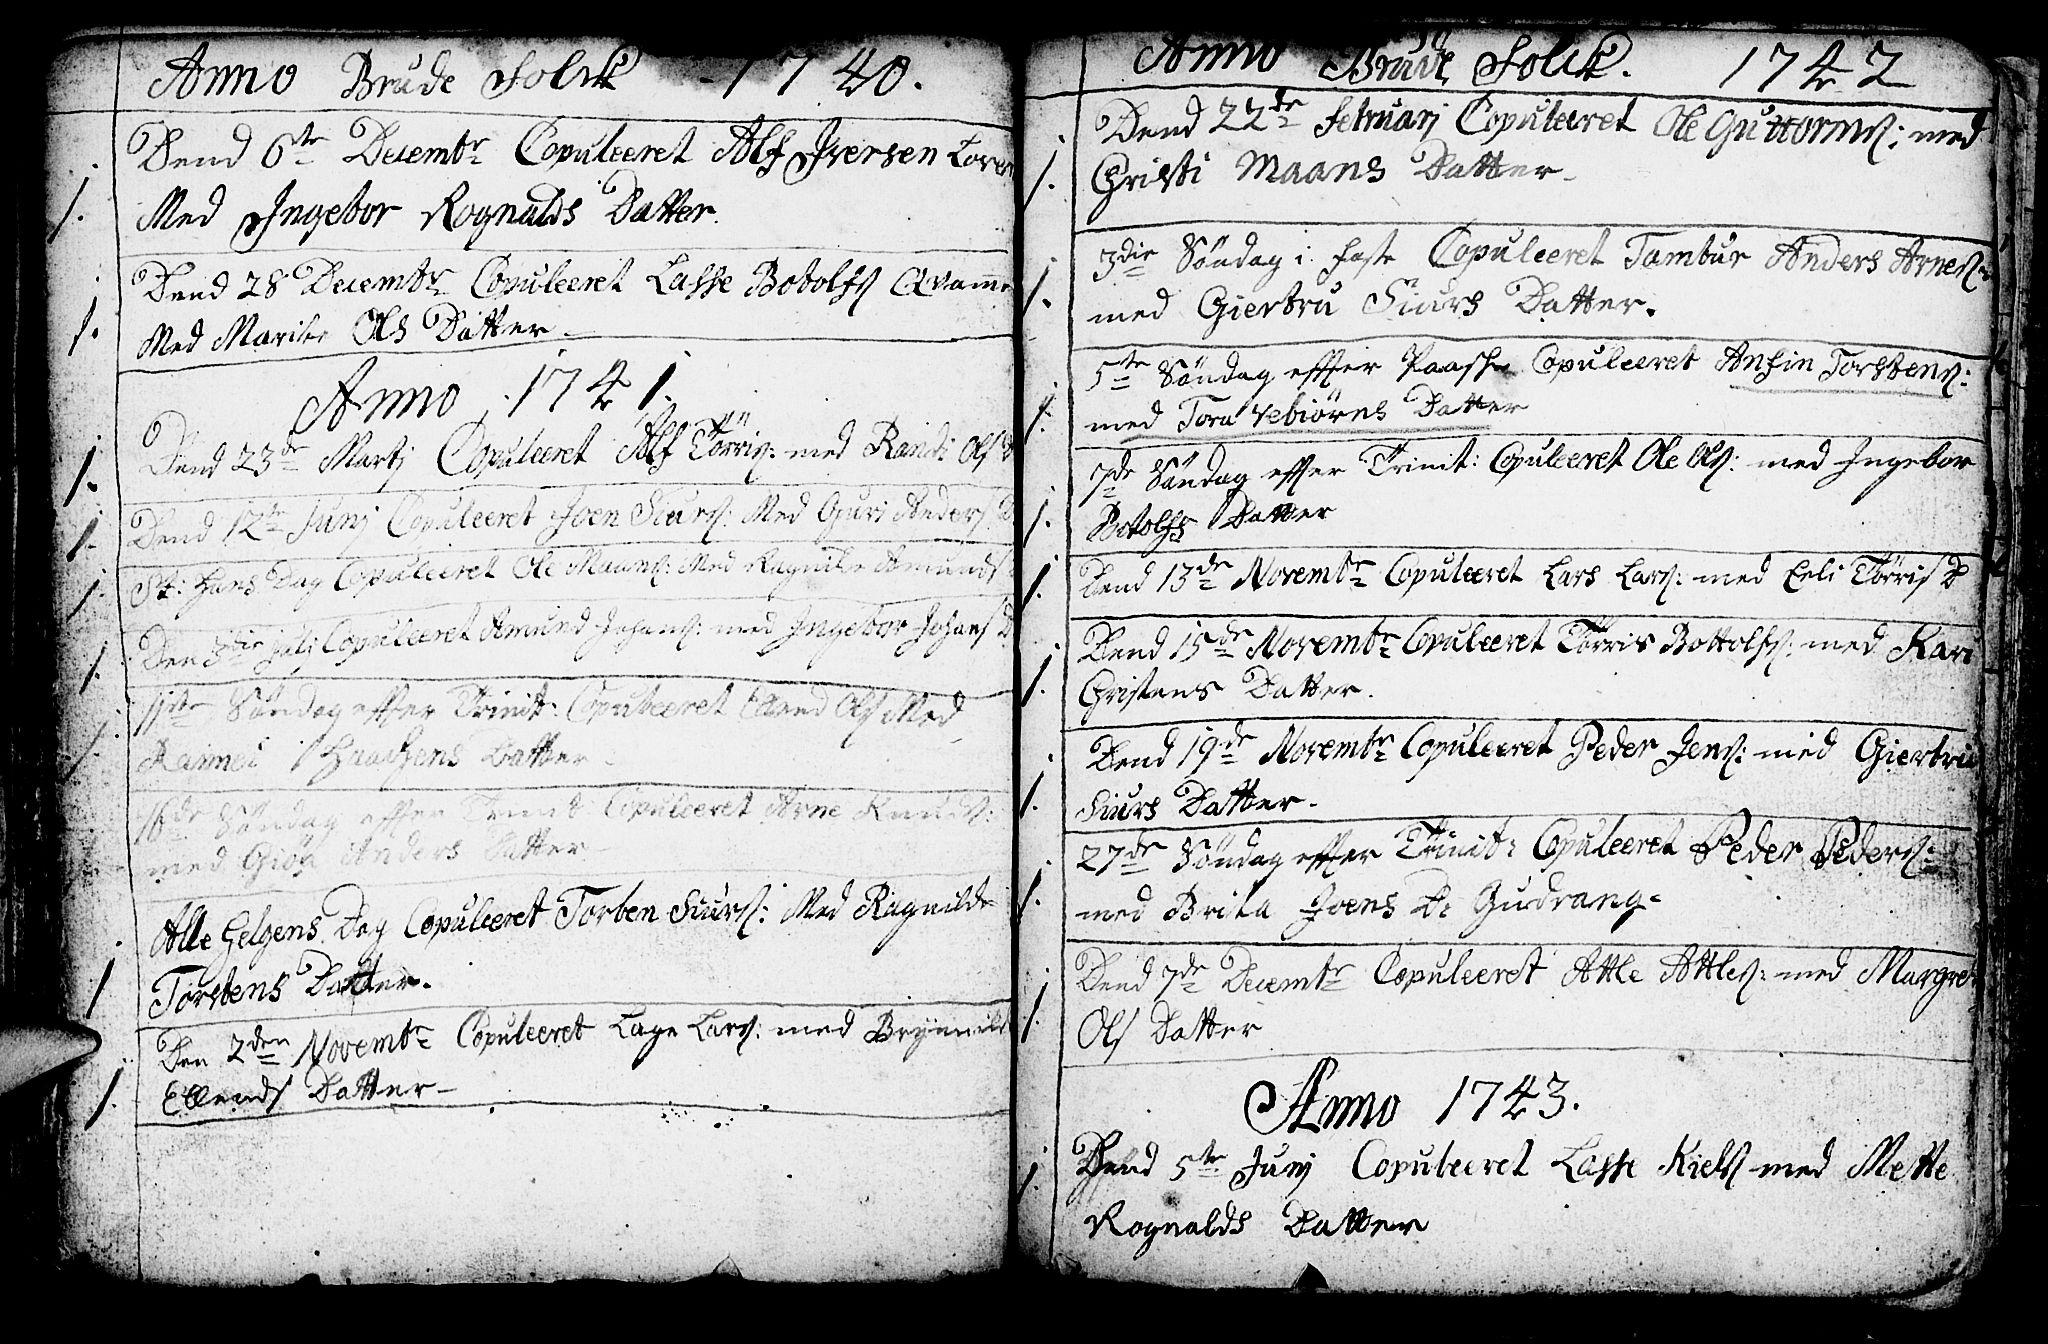 Anno Brude Folck 1740.
Dend 6te Decembr Copuleeret Alf Iversen
1. Med Ingebor Rognalds Datter.
Dend 28 Decembr Copuleeret Lasse Botolfs Qvamme
1. Med Marite Ols Datter
Anno 1741.
1. Dend 23de Martj Copuleeret Alf Törris: med Randi Ols D
1. Dend 12te Junj Copuleeret Joen Siurs: Med Guri Anders D
1. St: Hans Dag Copuleeret Ole Maans: Med Ragnilde Amunds
1. Den 3die julj Copuleeret Amund Johans: med Ingebor Johans D
11te Söndag effter Trinit: Copuleeret Ellend Ols Med
1. Haachens Datter
16de Söndag effter Trinit: Copuleeret Arne Knuds:
med Giöa Anders Datter
Alle Helgens Dag Copuleeret Torben Siurs: Med Ragnilde
1 Torstens Datter.
Den 2den Novembr Copuleeret Lage Lars: med Brynnild
1. Ellends Datter
Anno Brude Folck. 1742
Dend 22de Februarj Copuleeret Ole Guttorms: med
1. Christi Maans Datter
3die Söndag i faste Copuleeret Tambur Anders Arnes:
1. med Giertru Siurs Datter.
5te Söndag effter Paaske Copuleeret Anfin Torstens:
1. med Tora Vebiörns Datter
7de Söndag effter Trinit: Copuleeret Ole Ols: med Ingebor
1. Botolfs Datter
1. Dend 13de Novembr Copuleeret Lars Lars: med Eeli Törris D
Dend 15de Novembr Copuleeret Törris Bottolfs: med Kari
1. Christens Datter.
Dend 19de Novembr Copuleeret Peder Jens: med Giertru
1. Siurs Datter.
27de Söndag effter Trinit: Copuleeret Peder Peders:
1. med Brita Joens D: Gudrang.
Dend 7de Decembr Copuleeret Attle Attles: med Margret
1. Ols Datter
Anno 1743.
Dend 5te Junj Copuleeret Lasse Kiels med Mette
1. Rognalds Datter